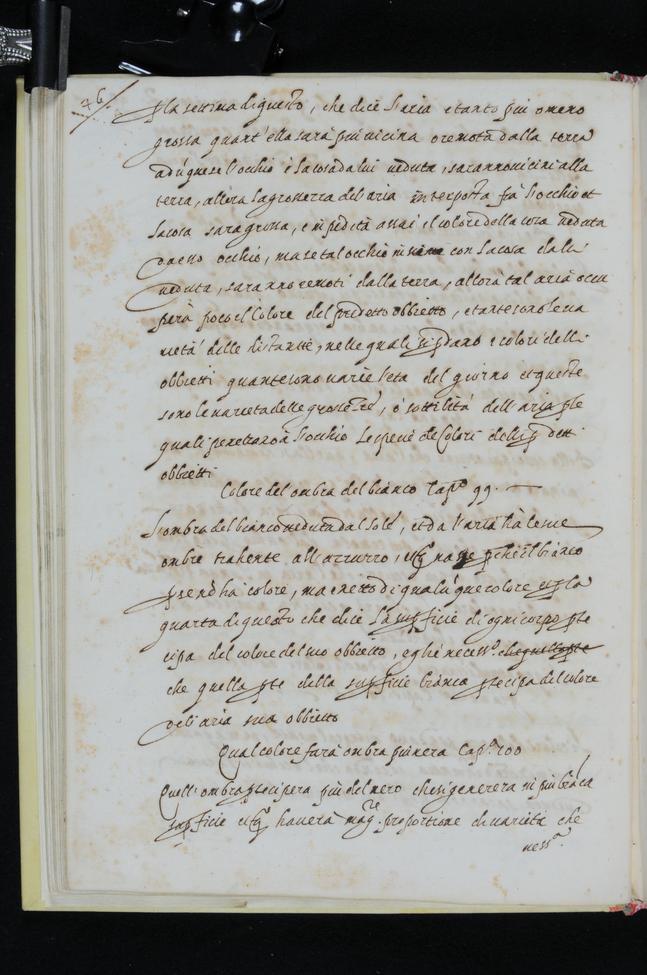 76
p la settima di questo, che dice l'aria e tanto piu o meno
grossa quant'ella sarà piu vicina o remota dalla terra
adūque se l'occhio e la cosa da lui veduta, saranno vicini alla
terra, allora la grosserza del'aria interposta frà l'occhio et
la cosa sarà grossa, e inpedità assai il colore della cosa veduta
da esso occhio, ma se tal occhio insieme con la cosa da lui
veduta, saranno remoti dalla terra, allora tal aria occu
perà poco il colore del predetto obbietto, e tante sono le va
rietà delle distantie, nelle quali si pdano e colori delli
obbietti quante sono varie l'eta del giorno et queste
sono le varieta delle grossezze, ò sottilità dell'aria p le
quali penetrano à l'occhio le specie de colori delli p detti
obbietti
Colore del ombra del bianco Capº 99.
L'ombra del bianco veduta dal sole, et da l'aria hà le sue
ombre trahente all'azzurro, et q na p che il bianco
p se nō ha colore, ma e ricetto di qualūque colore et p la
quarta di questo che dice la supficie di ogni corpo pte
cipa del colore del suo obbietto, egli è necessº. che quella pte
che quella pte della supficie bianca ptecipa del colore
del'aria suo obbietto
Qual colore farà ombra piu nera Capº 100
Quell'ombra ptecipera piu del nero che si genererà in piu biāca
supficie et q havera magre. proportione di varietà che
nessª.